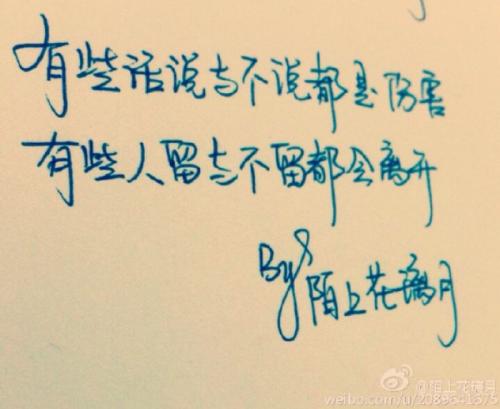 有些话说与不说都是伤害
有些人留与不留都会离开
By 陌上花璃月
@陌上花璃月
weibo.com/u/2089641375